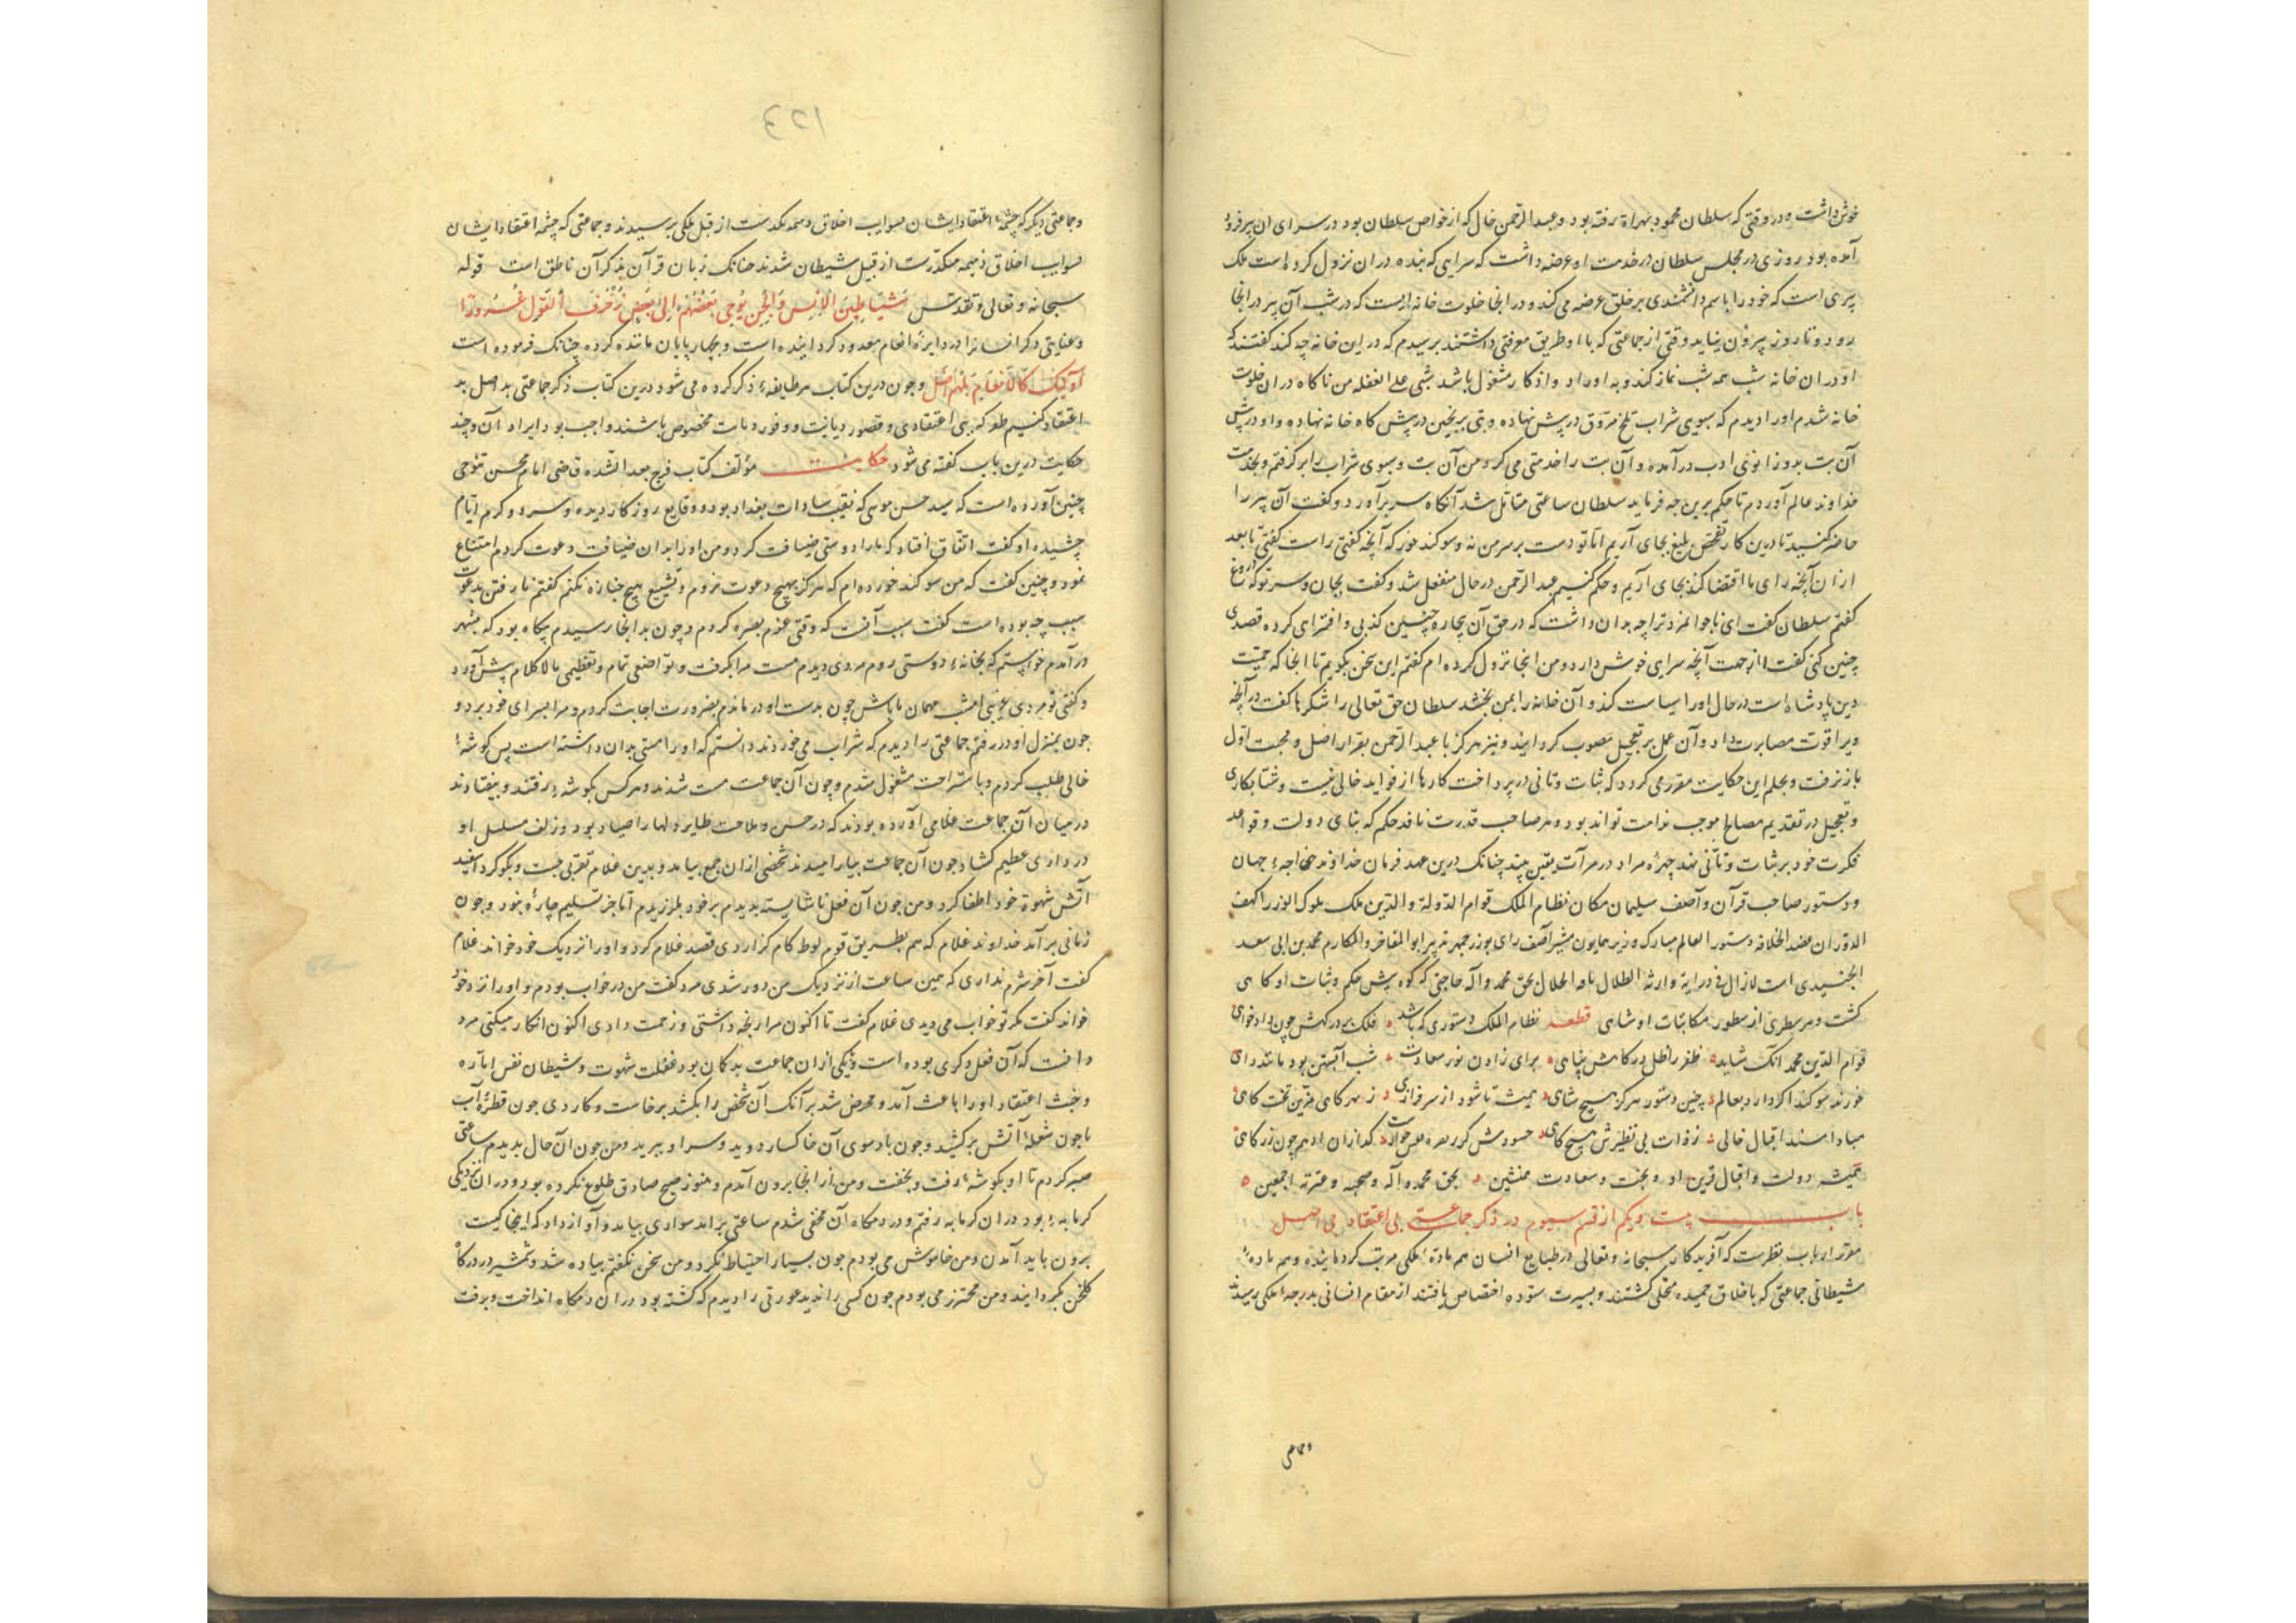 خوش داشت و در وقتی که سلطان محمود بهراة رفته بود و عبد الرحمن خال که از خواص سلطان بود در سرای ان پیر فرود
آمده بود روزی در مجلس سلطان در خدمت او عرضه داشت که سرایی که بنده در ان نزول کرده است ملک
پیری است که خود را باسم دانشمندی بر خلق عرضه می کند و در انجا خلوت خانه ایست که در شب آن پیر در انجا
رود و تا روز بیرون نیاید وقتی از جماعتی که با او طریق معرفتی داشتند برسیدم که در این خانه چه کند گفتند که
او در ان خانه شب همه شب نماز کند و به اوراد و اذکار مشغول باشد شبی علی الغفله من ناکاه در ان خلوت
خانه شدم او را دیدم که سبوی شراب تلخ مروق در پیش نهاده و بتی برنجین در پیش کاه خانه نهاده و او در پیش
آن بت بدو زانوی ادب در آمده و آن بت را خدمتی می کرد من آن بت و سبوی شراب را بر کرفتم و بخدمت
خداوند عالم آوردم تا حکم برین چه فرماید سلطان ساعتی متامل شد آنکاه سر بر آورد و گفت آن پیر را
حاضر کنید تا درین کار تفحص بلیغ بجای آریم اما تو دست بر سر من نه و سوکند خور که آنچه کفتی راست کفتی تا بعد
از ان آنچه رای ما اقتضا کند بجای آریم و حکم کنیم عبد الرحمن در حال منفعل شد و کفت بجان و سر تو که دروغ
کفتم سلطان کفت ای ناجوانمرد ترا چه بدان داشت که در حق آن بیچاره چنین کذبی و افترای کرده قصدی
چنین کنی کفت از جهت آنچه سرایی خوش دارد و من انجا نزول کرده ام کفتم این سخن بکویم تا انجا که حمیت
دین پادشاه است در حال او را سیاست کند و آن خانه را بمن بخشد سلطان حق تعالی را شکرها کفت در آنچه
ویرا قوت مصابرت داد و آن عمل بر تعجیل مصوب کردانید و نیز هرکز با عبد الرحمن بقرار اصل و محبت اول
باز نرفت و بحلم این حکایت مقرر می کردد که ثبات و تانی در پرداخت کارها از فواید خالی نیست و شتابکاری
و تعجیل در تقدیم مصالح موجب ندامت تواند بود و هر صاحب قدرت نافذ حکم که بنای دولت و قواعد
فکرت خود بر ثبات و تانی نهد چهره مراد در مرآت یقین بیند چنانک درین عهد فرمان خداوند خواجه جهان
و دستور صاحب قرآن و آصف سلیمان مکان نظام الملک قوام الدولة و الدین ملک ملوک الوزرا کهف
الدوران عضد الخلافه دستور العالم مبارک وزیر همایون مشیر آصف رای بوزرجمهر تدبیر ابو المفاخر والمکارم محمد بن ابی سعد
الجنیدی است لازال فی درایة وارثة الظلال نامه الحلال بحق محمد وآله حاجتی که کوه پیش حکم و ثبات او کاهی
کشت و هر سطری از سطور مکاتبات او شاهی قطعه نظام الملک دستوری که باشد فلک بر درکهش چون دادخواهی
قوام الدین محمد انک شاید ظفر را ظل درکاهش پناهی برای زادن نور سعادت شب آبستن بود مانند رای
خورند سوکند اکر دارد بعالم چنین دستور هرکز هیچ شاهی همیشه تا شود از سرفرازی ز هر کاهی مزین تخت کاهی
مبادا مسند اقبال خالی ز ذات بی نظیرش هیچ کاهی حسودش که ازان ادیم چون زر کاهی
همیشه دولت و اقبال قرین او و بخت و سعادت همنشین بحق محمد و آله وصحبه وعترته اجمعین
باب بیست و یکم از قسم سیوم در ذکر جماعت بی اعتقاد بی اصل
مقرر ارباب نظرست که آفریدکار سبحانه وتعالی در طبایع انسان هم ماده ملکی مرتب کردانیده و هم ماده
شیطانی جماعتی که باخلاق حمیده متحلی کشتند و بسیرت ستوده اختصاص یافتند از مقام انسانی بدرجه ملکی رسیدند
وجماعتی
۱۲۳
وجماعتی دیکر که چشمه اعتقاد ایشان بسوایب اخلاق ذمیمه مکدرست از قبل ملکی برسیدند وجماعتی که چشمه اعتقاد ایشان
بسوایب اخلاق ذمیمه مکدرست از قبیل شیطان شدند چنانک زبان قرآن بذکر آن ناطق است قوله
سبحانه وتعالی وتقدس شَیَاطِینَ الْاِنْسِ وَالْجِنِّ یُوحِی بَعْضُهُمْ اِلَی بَعْضٍ زُخْرُفَ الْقَوْلِ غُرُورًا
و عنایتی دکر انسانرا در دایره انعام معدود کردانیده است و بچهارپایان مانند کرده چنانک فرموده است
اُولَئِکَ کَالْاَنْعَامِ بَلْ هُمْ اَضَلُّ و چون درین کتاب هر طایفه ذکر کرده می شود درین کتاب ذکر جماعتی بد اصل بد
اعتقاد کنیم که ببی اعتقادی و قصور دیانت و وفور مخصوص باشند واجب بود ایراد آن و چند
حکایت درین باب کفته می شود حکایت مؤلف کتاب فرج بعد الشده قاضی امام محسن تنوخی
چنین آورده است که سید حسن موسی که نقیب سادات بغداد بود و وقایع روزکار دیده و سرد و کرم ایام
چشیده او کفت اتفاق افتاد که ما را دوستی ضیافت کرد و من او را بدان ضیافت دعوت کردم امتناع
نمود و چنین کفت که من سوکند خورده ام که هرکز بهیچ دعوت نروم و تشییع هیچ جنازه نکنم کفتم نارفتن بدعوت
سبب چه بوده است کفت سبب آنست که وقتی عزم بصره کردم و چون بدانجا رسیدم بیکاه بود که بشهر
درآمدم خواستم که بخانه دوستی روم مردی دیدم مست مرا بکرفت و تواضعی تمام و تعظیمی مالاکلام پیش آورد
و کفتی تو مردی غریبی امشب مهمان ما باش چون بدست او درماندم بضرورت اجابت کردم و مرا بسرای خود برد و
چون بمنزل او در رفتم جماعتی را دیدم که شراب می خوردند دانستم که او را مستی بدان داشته است پس کوشه
خالی طلب کردم و باستراحت مشغول شدم و چون آن جماعت مست شدند و هر کس بکوشه برفتند و بیفتادند
در میان آن جماعت غلامی آورده بودند که در حسن و ملاحت طایر دلها را صیاد بود و زلف مسلسل او
در دلداری عظیم کشاد چون آن جماعت بیارامیدند شخصی از ان جمع بیامد و بدین غلام تقربی جست و بکوکرد اسفید
آتش شهوة خود اطفا کرد و من چون آن فعل ناشایسته بدیدم بر خود بلرزیدم اما جز تسلیم چاره نبود و چون
زمانی بر آمد خداوند غلام که هم بطریق قوم لوط کام کزاردی قصد غلام کرد و او را نزدیک خود خواند غلام
کفت آخر شرم نداری که همین ساعت از نزدیک من دور شدی مرد کفت من در خواب بودم و او را نزد خود
خواند کفت مکر تو خواب می دیدی غلام کفت تا اکنون مرا رنجه داشتی و زحمت دادی اکنون انکار میکنی مرد
دانست که آن فعل دکری بوده است و بیکی از ان جماعت بدکمان بود غفلت شهوت و شیطان نفس اماره
و خبث اعتقاد او را باعث آمد و محرض شد بر آنک آن شخص را بکشد برخاست و کاردی چون قطره آب
یا چون شعله آتش برکشید و چون باد سوی آن خاکسار دوید و سر او ببرید و من چون آن حال بدیدم ساعتی
صبر کردم تا او بکوشه رفت و بخفت و من از انجا برون آمدم و هنوز صبح صادق طلوع نکرده بود و در ان نزدیکی
کرمابه بود در ان کرمابه رفتم و در دمکاه آن مخفی شدم ساعتی بر آمد سواری بیامد و آواز داد که اینجا کیست
برون باید آمدن و من خاموش می بودم چون بسیار احتیاط کرد و من سخن نکفتم پیاده شد و شمشیر در درکاه
کلخن بکردانید و من محترز می بودم چون کسی را ندید عورتی را دیدم که کشته بود در ان دمکاه انداخت و برفت